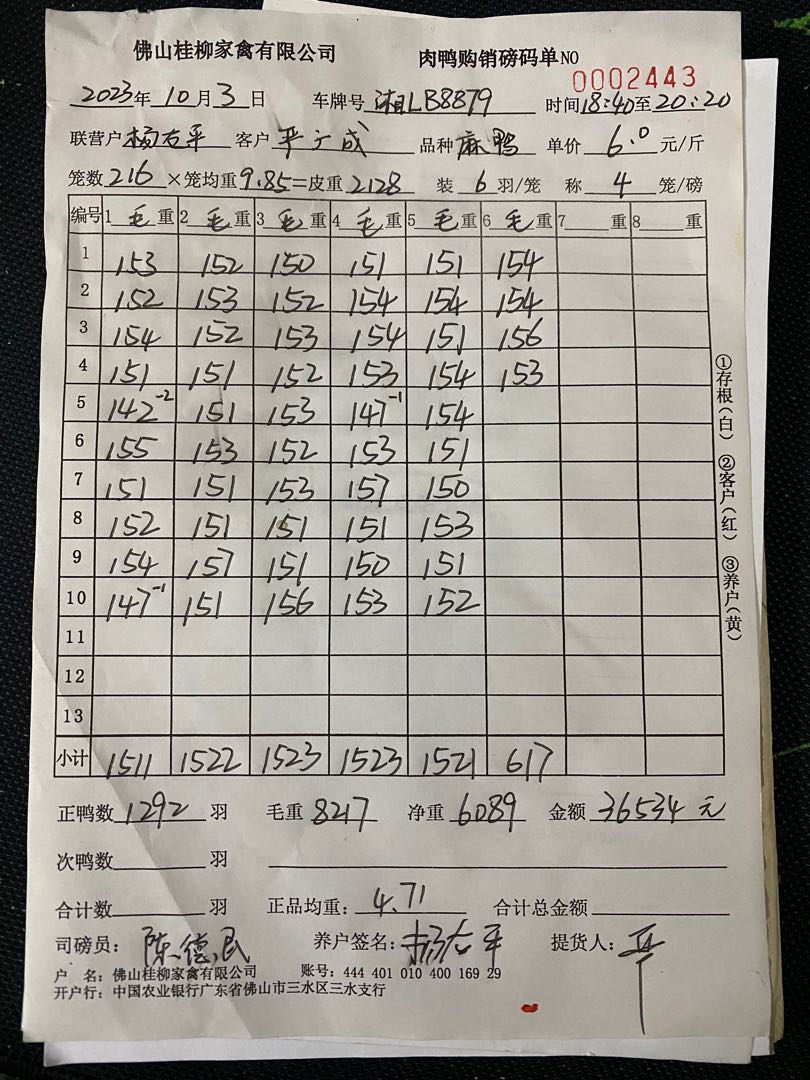 佛山桂柳家禽有限公司 肉鸭购销磅码单NO 0002443
2023年 10月 3日 车牌号 湘LB8879 时间18:40至20:20
联营户 杨右平 客户 平广成 品种 麻鸭 单价 6.0 元/斤
笼数216×笼均重9.85=皮重2128 装 6 羽/笼 称 4 笼/磅
编号 1 毛 重 2 毛 重 3 毛 重 4 毛 重 5 毛 重 6 毛 重 7 重 8 重
1 153 152 150 151 151 154
2 152 153 152 154 154 154
3 154 152 153 154 151 156
4 151 151 152 153 154 153
5 142⁻² 151 153 147⁻¹ 154
6 155 153 152 153 151
7 151 151 153 157 150
8 152 151 151 151 153
9 154 157 151 150 151
10 147⁻¹ 151 156 153 152
11
12
13
小计 1511 1522 1523 1523 1521 617
正鸭数 1292 羽 毛重 8217 净重 6089 金额 36534 元
次鸭数 羽
合计数 羽 正品均重: 4.71 合计总金额
司磅员: 陈德民 养户签名: 杨右平 提货人: 平
户 名: 佛山桂柳家禽有限公司 账号: 444 401 010 400 169 29
开户行: 中国农业银行广东省佛山市三水区三水支行
①存根(白) ②客户(红) ③养户(黄)